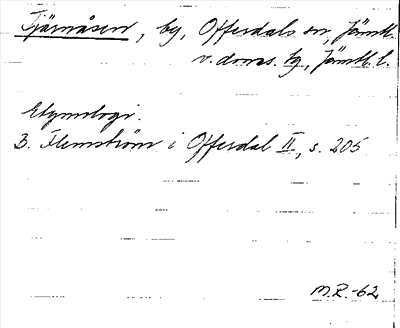 Tjärnåsen, by, Offerdals sn, Jämtl.
v. doms. hg, Jämtl. l.
Etymologi.
B. Flemström i Offerdal II, s. 205
M.R. -62